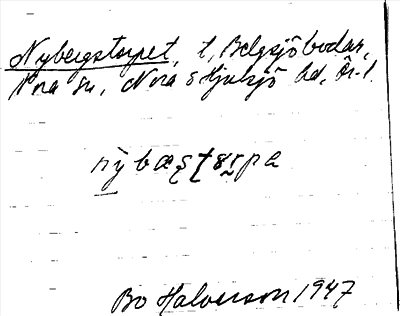 Nybergstorpet, t, Belgsjöbodar,
Nora sn, Nora o Hjulsjö hd, Ör. l.
nybæştørpa
Bo Halverson 1947